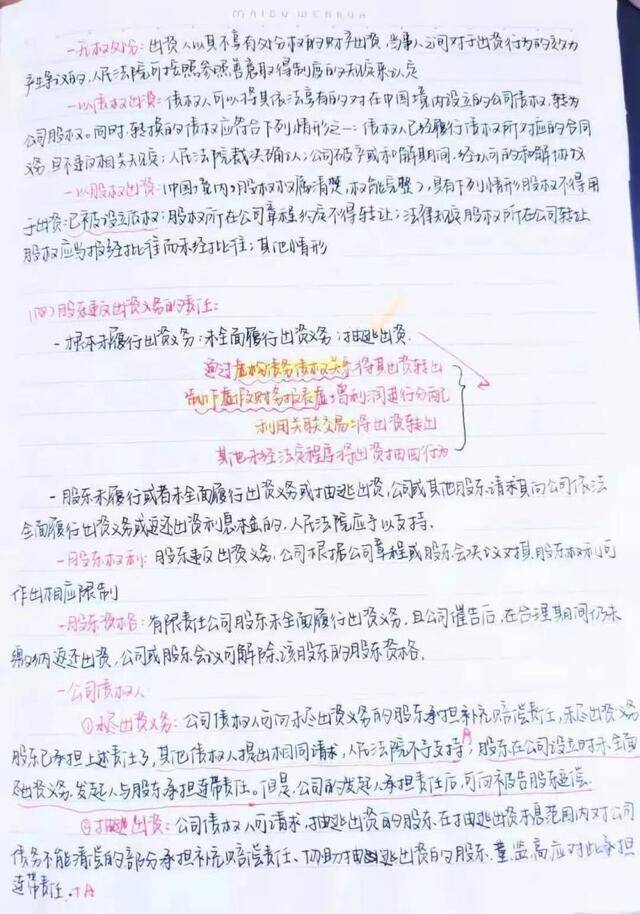 MAIBU WENHUA
-无权处分:出资人以其不享有处分权的财产出资,当事人之间对于出资行为的效力
产生争议的,人民法院可按照参照善意取得制度的规定来认定
-以债权出资:债权人可以将其依法享有的对在中国境内设立的公司债权,转为
公司股权。同时,转换的债权应符合下列情形之一:债权人已经履行债权所对应的合同
义务,且不违反相关规定;人民法院裁决确认;公司破产或和解期间,经认可的和解协议
-以股权出资:(中国境内,股权权属清楚,权能完整),具有下列情形股权不得用
于出资:已被设立质权;股权所在公司章程约定不得转让;法律规定股权所在公司转让
股权应当报经批准而未经批准;其他情形
(四)股东违反出资义务的责任:
-根本未履行出资义务;未全面履行出资义务;抽逃出资.
通过虚构债务债权关系将其出资转出
制作虚假财务报表虚增利润进行分配
利用关联交易将出资转出
其他未经法定程序将出资抽回行为
-股东未履行或者未全面履行出资义务或抽逃出资,公司或其他股东请求其向公司依法
全面履行出资义务或返还出资利息本金的,人民法院应予以支持.
-股东权利:股东违反出资义务,公司根据公司章程或股东会决议对其股东权利可
作出相应限制
-股东资格:有限责任公司股东未全面履行出资义务,且公司催告后,在合理期间仍未
缴纳返还出资,公司或股东会议可解除该股东的股东资格.
-公司债权人
①未尽出资义务:公司债权人可向未尽出资义务的股东承担补充赔偿责任,未尽出资义务
股东已承担上述责任了,其他债权人提出相同请求,人民法院不予支持;股东在公司设立时未全面
尽出资义务,发起人与股东承担连带责任。但是,公司的发起人承担责任后,可向被告股东追偿.
②抽逃出资:公司债权人可请求,抽逃出资的股东,在抽逃出资本息范围内对公司
债务不能清偿的部分承担补充赔偿责任、协助抽逃出资的股东、董、监、高应对此承担
连带责任.